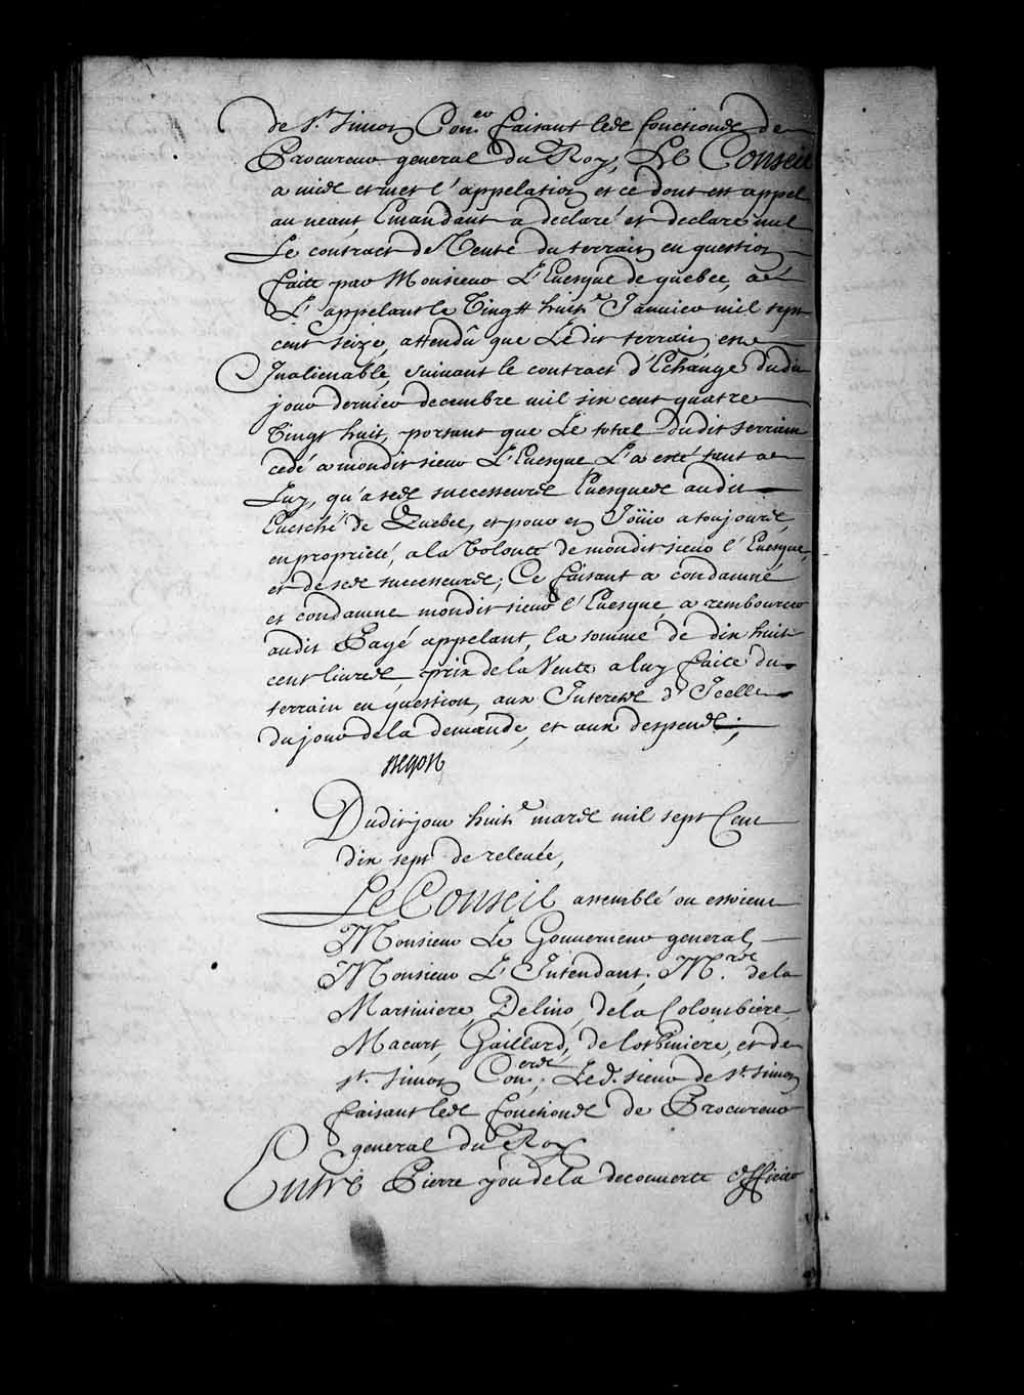 de St. Simon Con.er faisant les fonctions de
Procureur general du Roy, Le Conseil
a mis et met l'appelation et ce dont est appel
au neant, Emandant a declaré et declare nul
Le contract de Vente du terrain en question
faite par Monsieur L'Euesque de quebec, a
L'appelant le Vingt huit.e Januier mil sept
cent seize, attendû que Ledit terrain est
Inalienable, suiuant le contract d'Echange dudit
jour dernier decembre mil six cent quatre
Vingt huit, portant que Le total dudit terrain
cedé a mondit sieur L'Euesque L'a esté tant a
Luy, qu'a ses successeurs Euesques audit
Euesché de Quebec, et pour en Joüir a toujours,
en propriété, a la Volonté de mondit sieur l'Euesque,
et de ses successeurs; Ce faisant a condamné
et condamne mondit sieur l'Euesque, a rembourser
audit Pagé appelant, la somme de dix huit
cent liures, prix de la Vente a luy faite du
terrain en question, aux Interests d'Icelle
du jour de la demande, et aux despens;
Begon
Dudit jour huit.e mars mil sept Cent
dix sept de releuée,
Le Conseil assemblé ou estoient
Monsieur Le Gouuerneur general,
Monsieur L'Intendant, M.rs de la
Martiniere, Delino, de la Colombiere
Macart, Gaillard, de Lotbiniere, et de
St. Simon Con.ers; Led. sieur de St. Simon
faisant les fonctions de Procureur
general du Roy
Entre Pierre you de la decouuerte officier